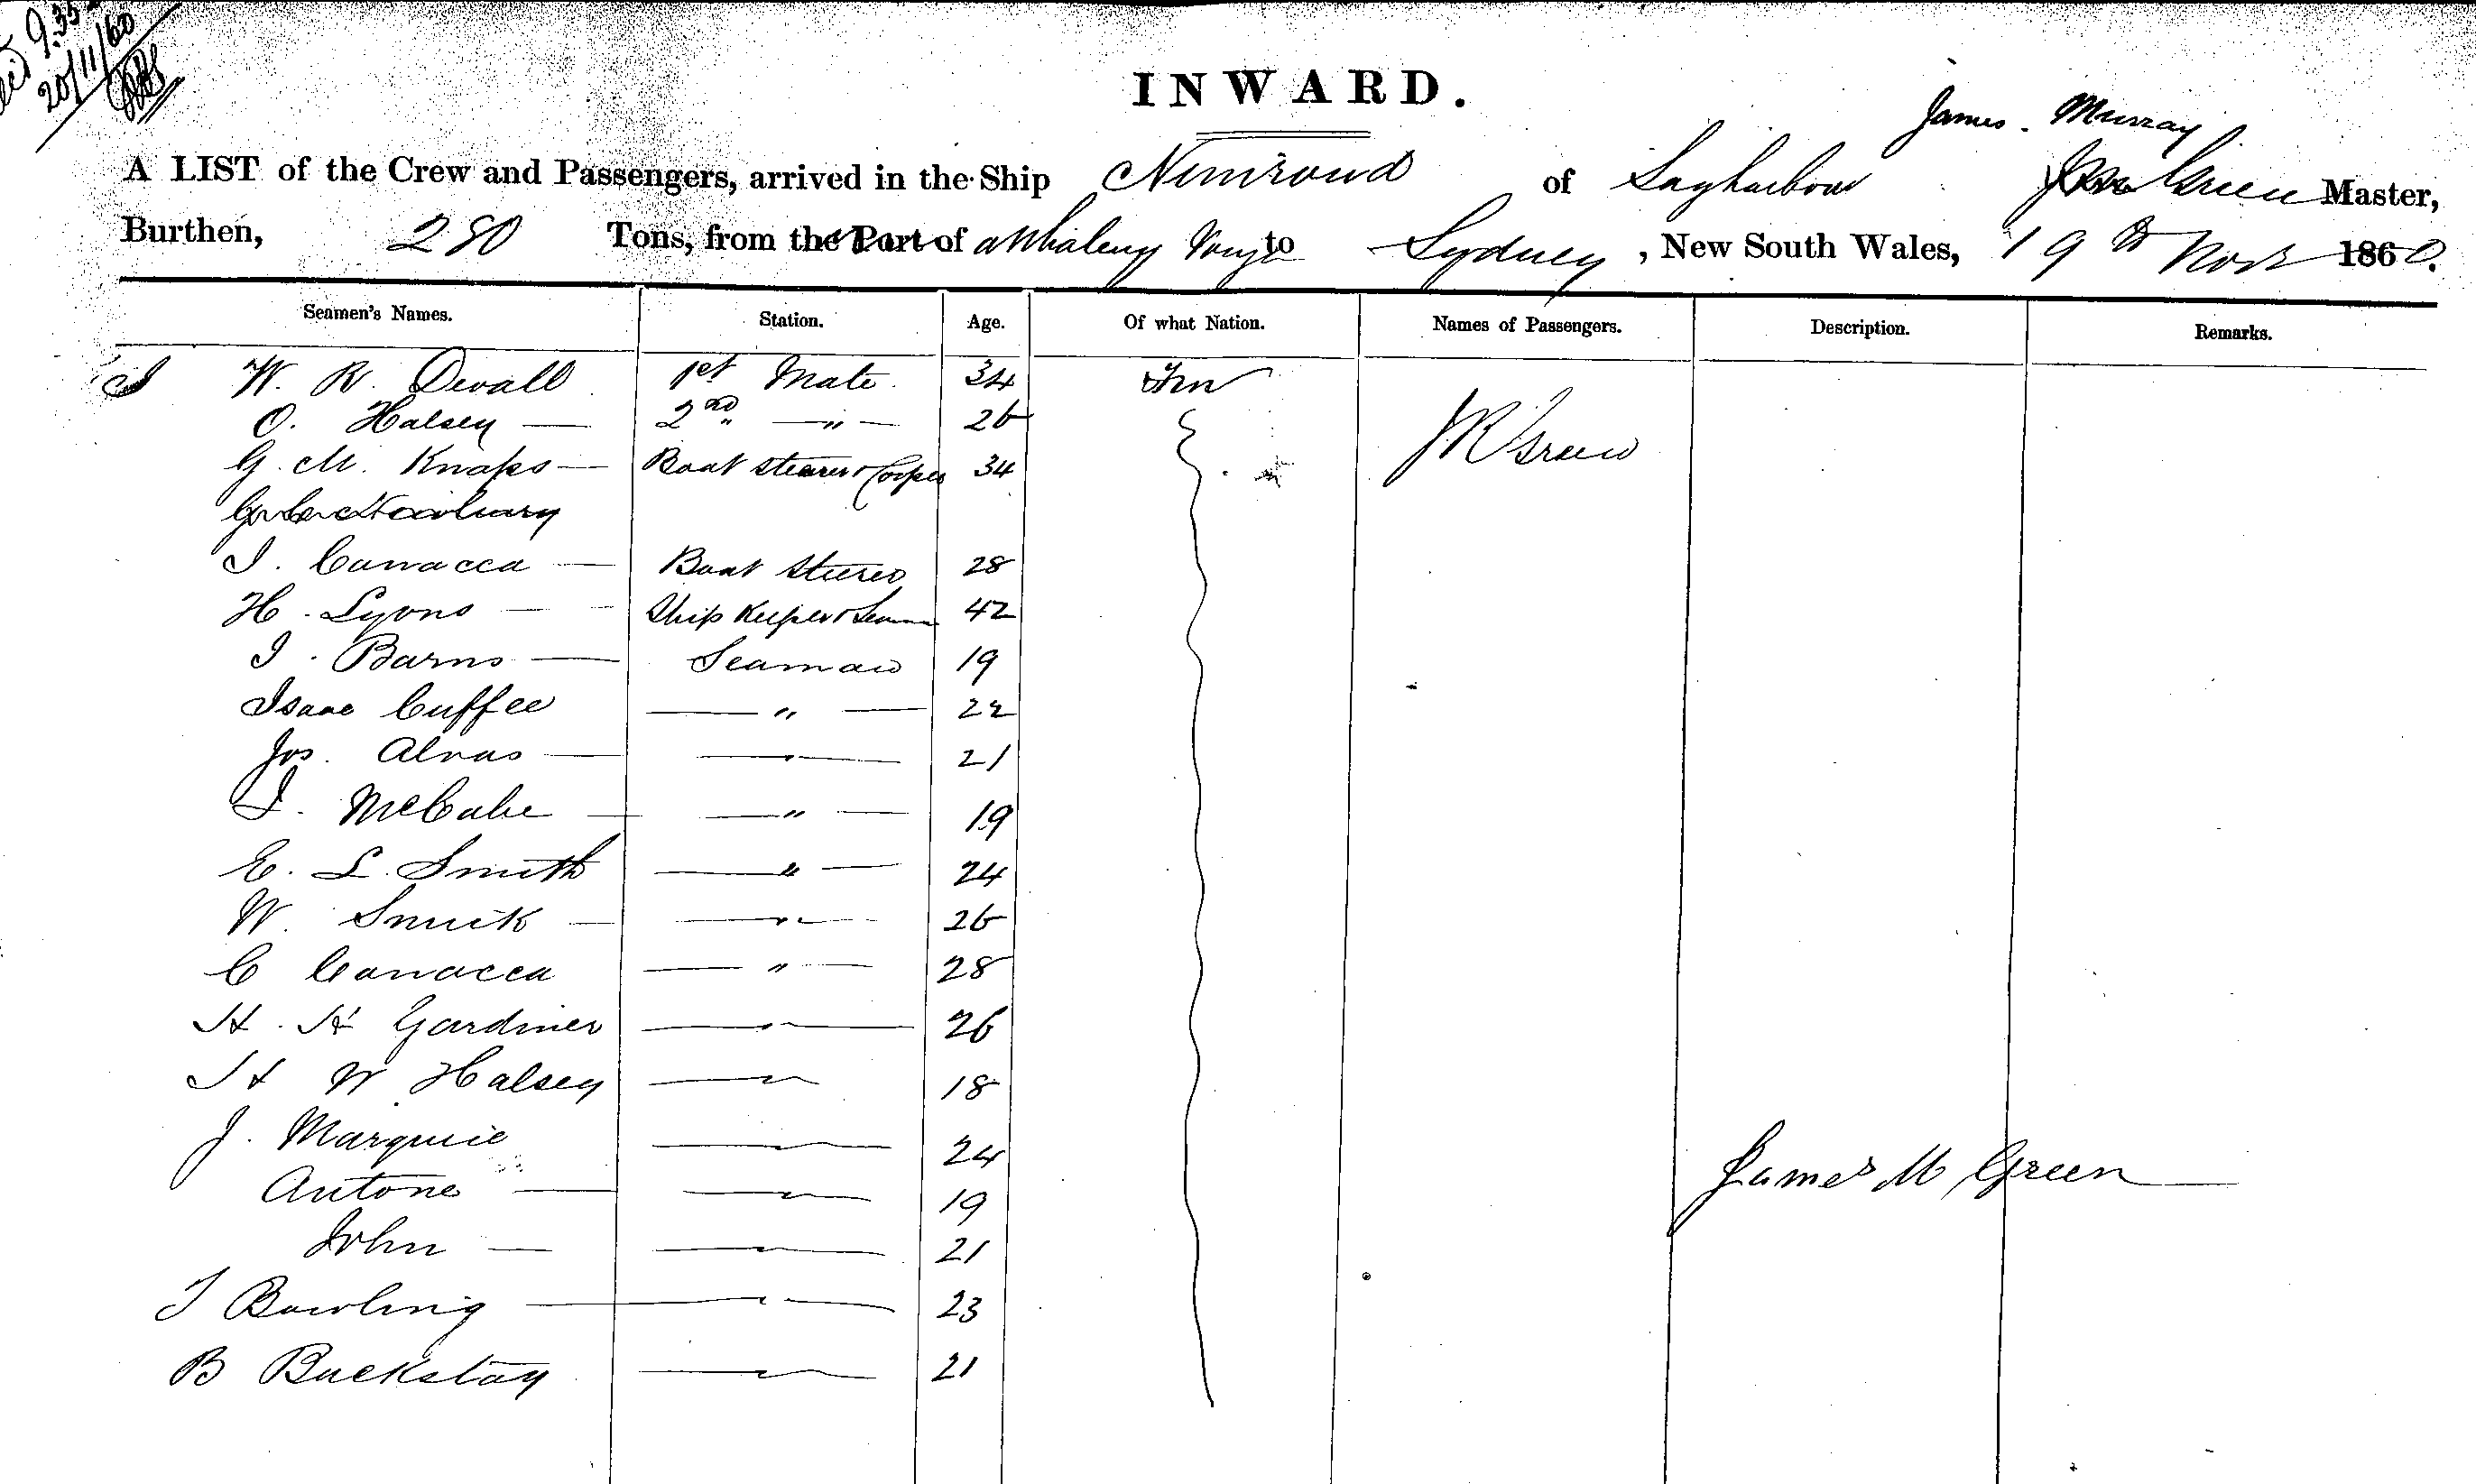 9.35
20/11/60
INWARD.
James Murray
A LIST of the Crew and Passengers, arrived in the Ship Nimroud of Sagharbour Green Master,
Burthen, 280 Tons, from the Port of a Whaleing Voyge to Sydney, New South Wales, 19th Novr 1860.
Seamen's Names. Station. Age. Of what Nation. Names of Passengers. Description. Remarks.
W. R. Devall 1st Mate 34
O. Halsey — 2nd " 26 J R Green
G. M. Knaps — Boat steerer & Cooper 34
I. Canacca — Boat steerer 28
H. Lyons — Ship Keeper & Seaman 42
I. Barns — Seaman 19
Isaac Cuffee — " — 22
Jos. Alvas — " — 21
I. McCabe — " — 19
E. L. Smith — " — 24
W. Smith — " — 26
C Canacca — " — 28
H. H Gardiner — " — 26
H W Halsey — " — 18
J. Marquie — " — 24
Antone — " — 19
James M Green
John — " — 21
T Bowling — " — 23
B Buckstay — " — 21